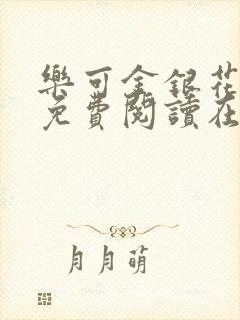 樂可金銀花
免費閱讀在
月月萌